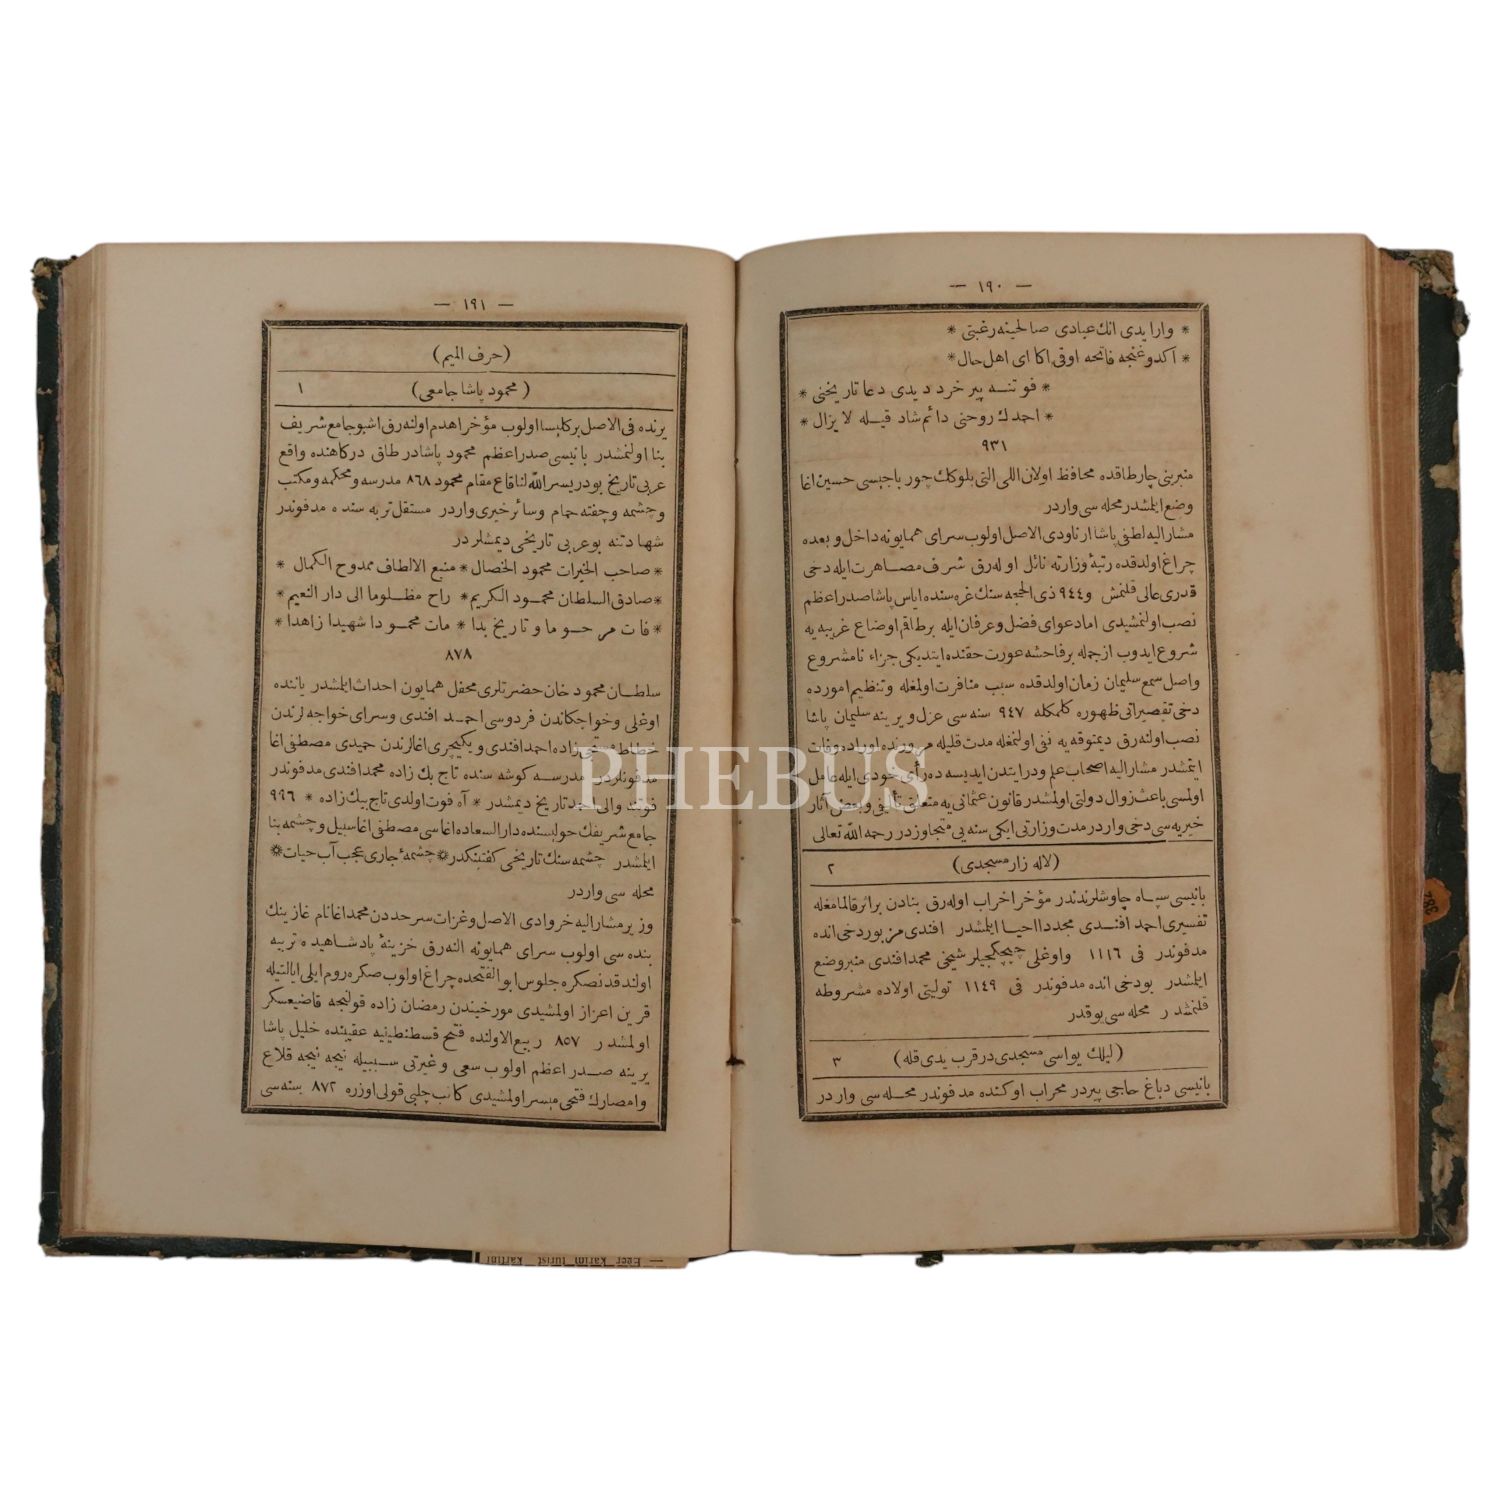 — ١٩٠ —
* وار ايدى انك عبادى صالحينه رغبتى *
* اكدوغنجه فاتحه اوقى اكا اى اهل حال *
* فوتنه پير خرد ديدى دعا تاريخنى *
* احمدك روحنى دائم شاد قيله لا يزال *
٩٣١
منبرينى چارطاقده محافظ اولان اللى التى بلوكك چورباجيسى حسين اغا
وضع ايلمشدر محله سى واردر
مشار اليه لطفى پاشا ارناودى الاصل اولوب سراى همايونه داخل و بعده
چراغ اولدقده رتبهٔ وزارته نائل اوله رق شرف مصاهرت ايله دخى
قدرى عالى قلنمش و ٩٤٤ ذى الحجه سنك غره سنده اياس پاشا صدر اعظم
نصب اولنمشيدى اما دعواى فضل و عرفان ايله برطاقم اوضاع غريبه يه
شروع ايدوب از جمله بر فاحشه عورت حقنده ايتديكى جزاء نامشروع
واصل سمع سليمان زمان اولدقده سبب منافرت اولمغله و تنظيم اموره
دخى تقصيراتى ظهوره كلمكله ٩٤٧ سنه سى عزل و يرينه سليمان پاشا
نصب اولنه رق ديمتوقه يه نفى اولنمغله مدت قليله مرورنده اوراده وفات
ايتمشدر مشار اليه اصحاب علم و درايتدن ايديسه ده رأى خودى ايله عامل
اولمسى باعث زوال دولتى اولمشدر قانون عثمانى يه متعلق تأليفى و بعض آثار
خيريه سى دخى واردر مدت وزارتى ايكى سنه يى متجاوزدر رحمه الله تعالى
(لاله زار مسجدى) ٢
بانيسى سپاه چاوشلرندندر مؤخرا خراب اوله رق بنادن براثر قالمامغله
تفسيرى احمد افندى مجددا احيا ايلمشدر افندى مزبور دخى انده
مدفوندر فى ١١١٦ واوغلى چيچكجيلر شيخى محمد افندى منبر وضع
ايلمشدر بودخى انده مدفوندر فى ١١٤٩ توليتى اولاده مشروطه
قلنمشدر محله سى يوقدر
(ليلك يواسى مسجدى در قرب يدى قله) ٣
بانيسى دباغ حاجى پيردر محراب اوكنده مدفوندر محله سى واردر
— ١٩١ —
(حرف الميم)
(محمود پاشا جامعى) ١
يرنده فى الاصل بركليسا اولوب مؤخرا هدم اولنه رق اشبو جامع شريف
بنا اولنمشدر بانيسى صدر اعظم محمود پاشادر طاق دركاهنده واقع
عربى تاريخ بودر يسر الله لنا قاع مقام محمود ٨٦٨ مدرسه و محكمه و مكتب
و چشمه و چفته حمام و سائر خيرى واردر مستقل تربه سنده مدفوندر
شهادتنه بو عربى تاريخى ديمشلردر
* صاحب الخيرات محمود الخصال * منبع الالطاف ممدوح الكمال *
* صادق السلطان محمود الكريم * راح مظلوما الى دار النعيم *
* فات مرحوما و تاريخ بدا * مات محمودا شهيدا زاهدا *
٨٧٨
سلطان محمود خان حضرتلرى محفل همايون احداث ايلمشدر ياننده
اوغلى و خواجكاندن فردوسى احمد افندى و سراى خواجه لرندن
خطاط زاده احمد افندى و يكيچرى اغالرندن حميدى مصطفى اغا
مدفونلردر مدرسه كوشه سنده تاج بك زاده محمد افندى مدفوندر
فوتنه والى احمد تاريخ ديمشدر * آه فوت اولدى تاج بيك زاده * ٩٩٦
جامع شريفك حوليسنده دار السعاده اغاسى مصطفى اغا سبيل و چشمه بنا
ايلمشدر چشمه سنك تاريخى كفتينكدر * چشمهٔ جارى عجب آب حيات *
محله سى واردر
وزير مشار اليه خروادى الاصل و غزات سرحددن محمد اغا نام غازينك
بنده سى اولوب سراى همايونه النه رق خزينهٔ پادشاهيده تربيه
اولندقدنصكره جلوس ابو الفتحده چراغ اولوب صكره روم ايلى ايالتيله
قرين اعزاز اولمشيدى مورخيندن رمضان زاده قولنجه قاضيعسكر
اولمشدر ٨٥٧ ربيع الاولنده فتح قسطنطينيه عقيبنده خليل پاشا
يرينه صدر اعظم اولوب سعى و غيرتى سببيله نيجه نيجه قلاع
و امصارك فتحى ميسر اولمشيدى كاتب چلبى قولى اوزره ٨٧٢ سنه سى
PHEBUS